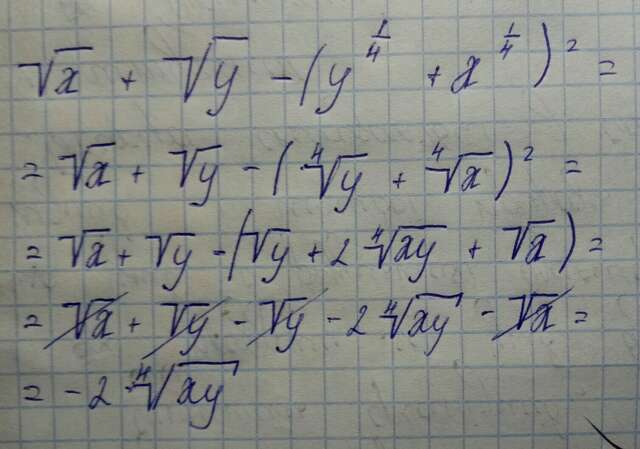 √x + √y - (y^{1/4} + x^{1/4})² =
= √x + √y - (⁴√y + ⁴√x)² =
= √x + √y - (√y + 2 ⁴√xy + √x) =
= √x + √y - √y - 2 ⁴√xy - √x =
= - 2 ⁴√xy